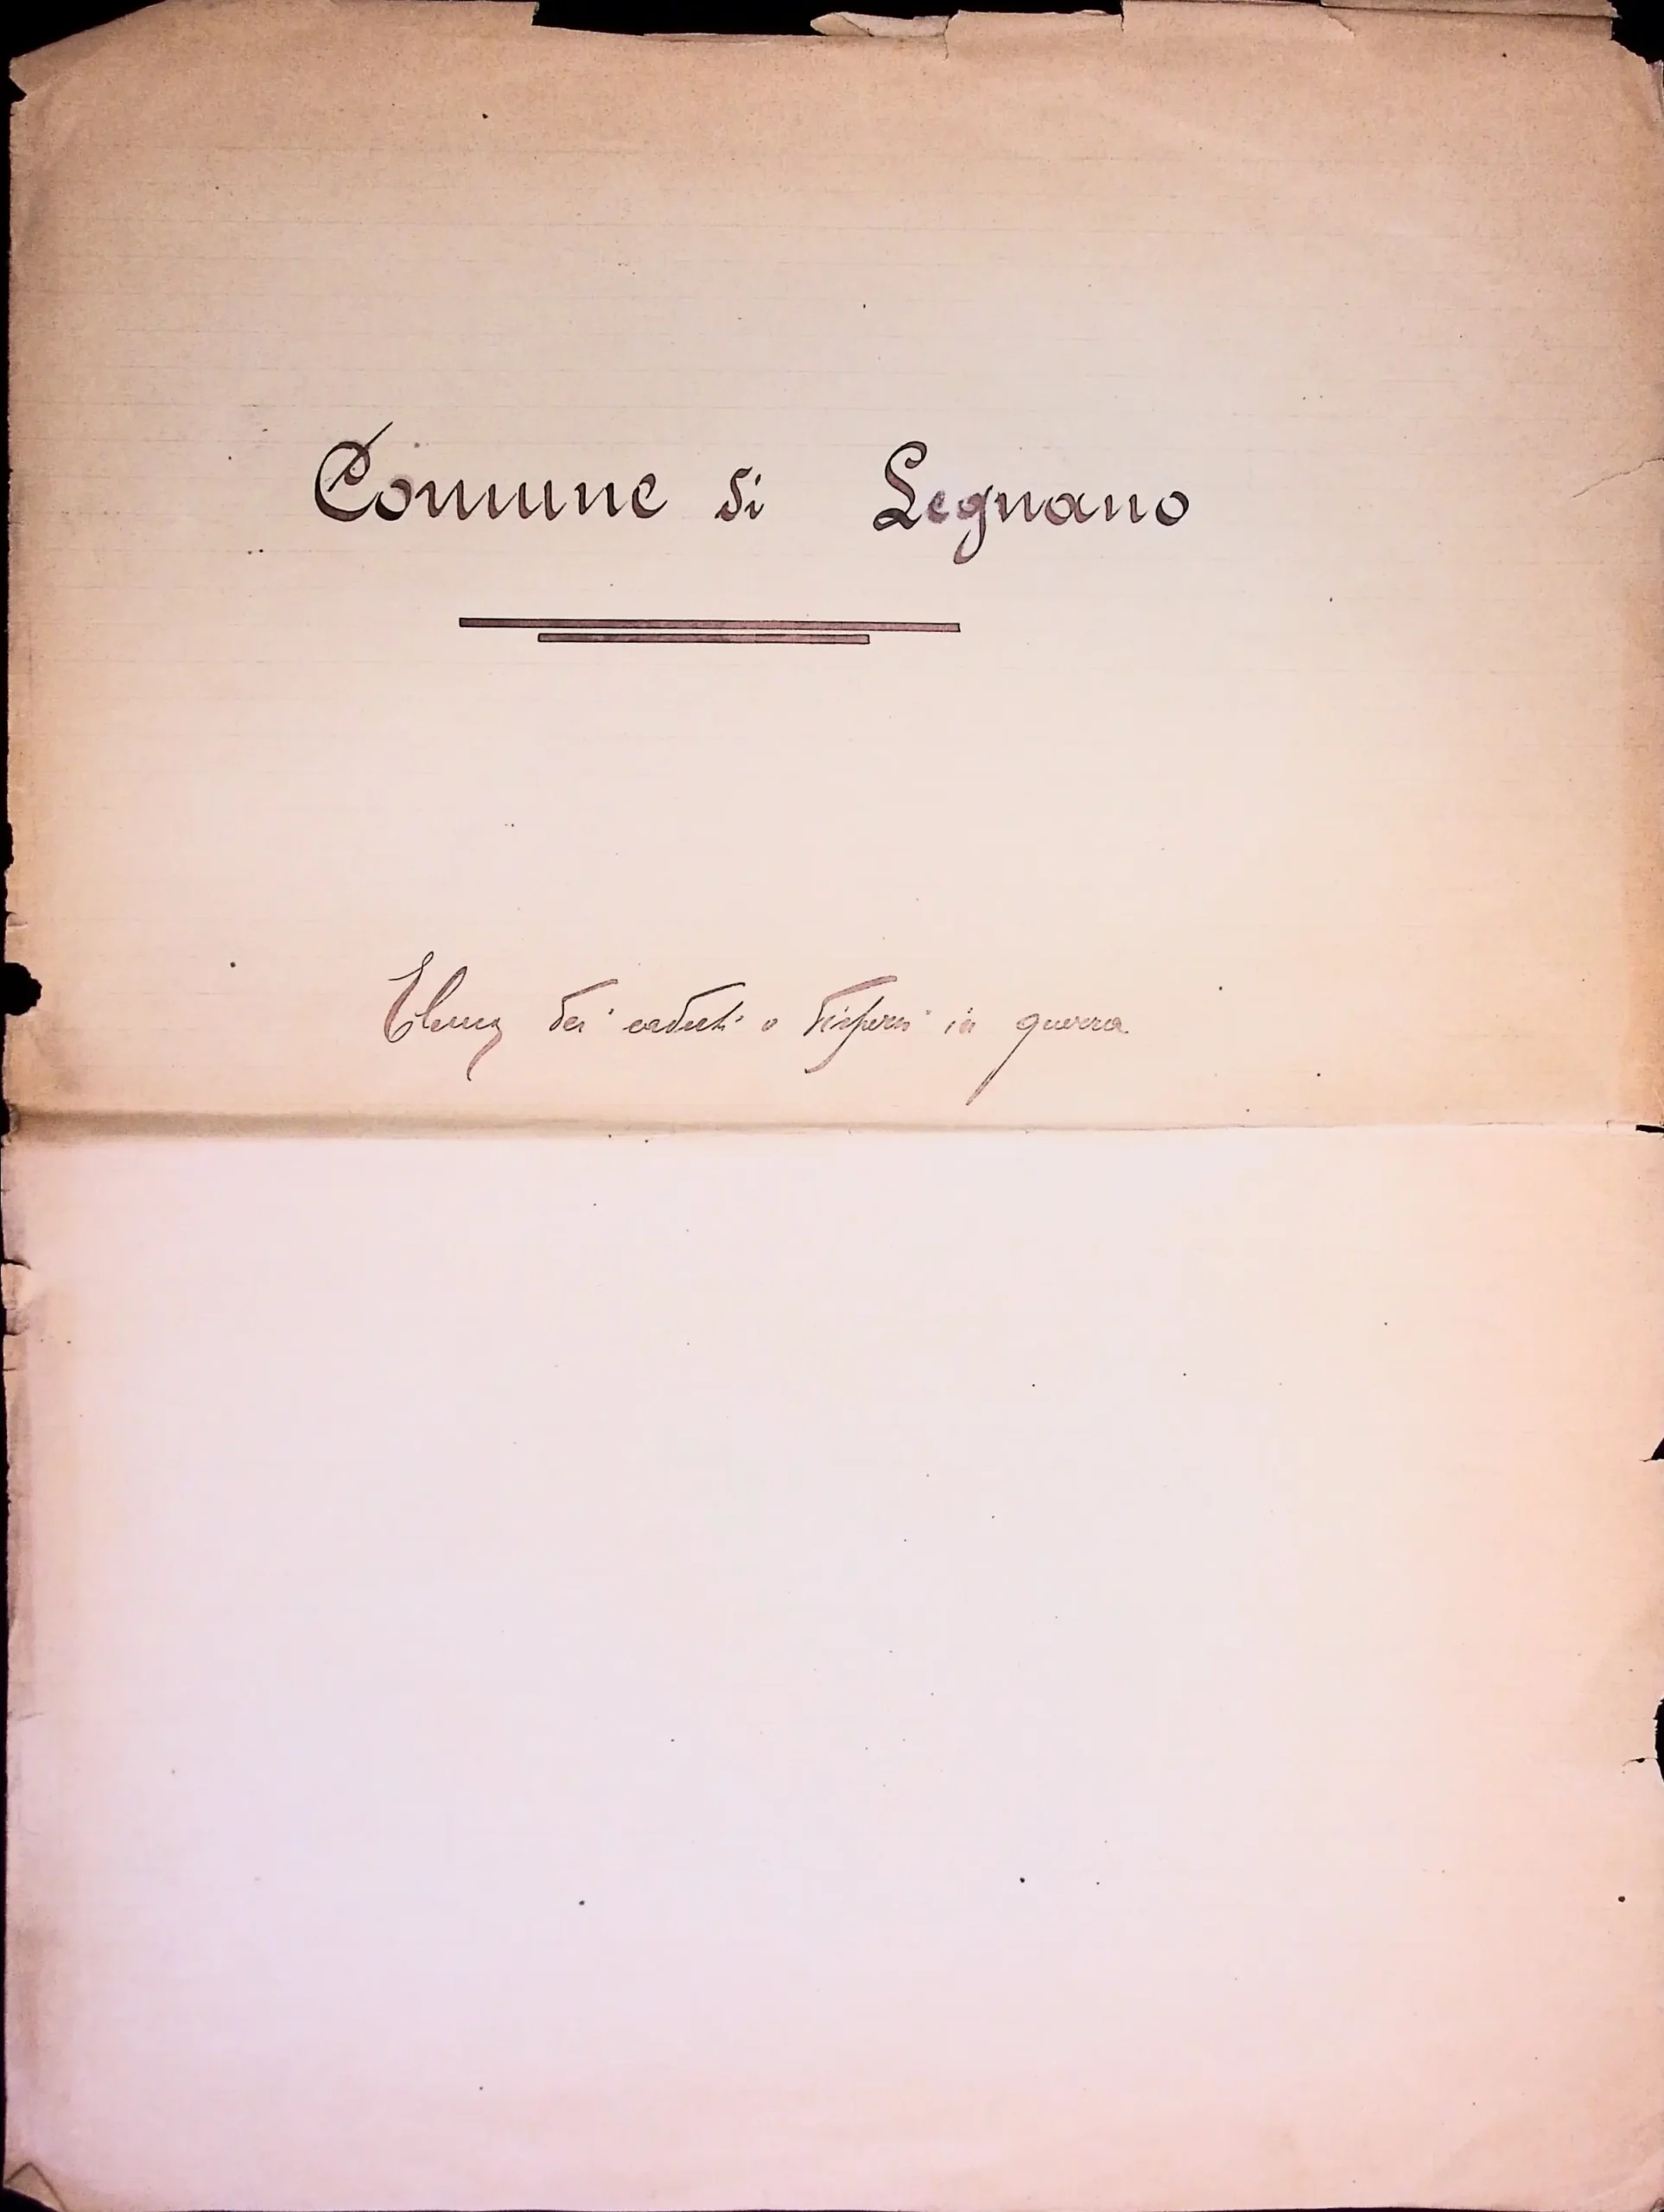 Comune di Legnano
Elenco dei caduti o dispersi in guerra